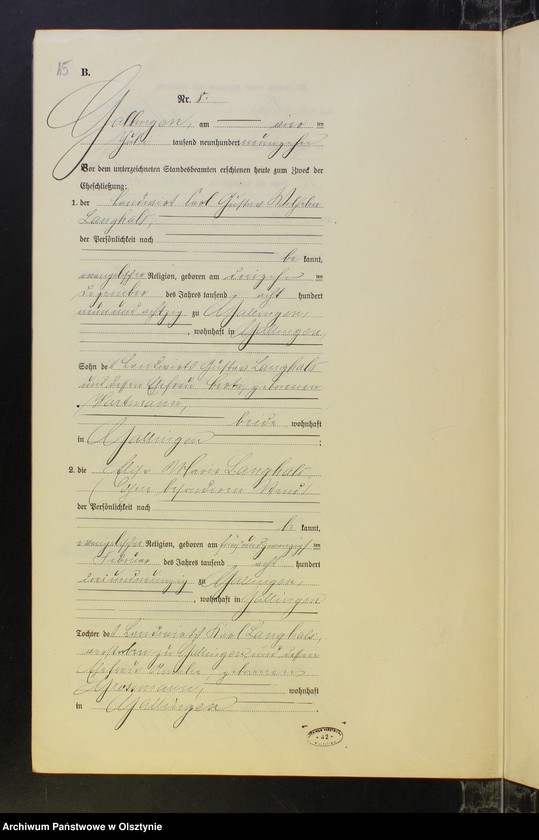 15 B.
Nr. 5.
Gallingen, am vier ten
tausend neunhundert neunzehn
Vor dem unterzeichneten Standesbeamten erschienen heute zum Zweck der
Eheschließung:
1. der Landwirt Carl Gustav Wilhelm
Langhals,
der Persönlichkeit nach
be kannt,
evangelischer Religion, geboren am ten
Dezember des Jahres tausend acht hundert
neunundachtzig zu Gallingen,
, wohnhaft in Gallingen,
Sohn des Landwirts Gustav Langhals
und dessen Ehefrau geborenen
beide wohnhaft
in Gallingen ;
2. die Marie Langhals,
ohne besonderen Beruf
der Persönlichkeit nach
be kannt,
evangelischer Religion, geboren am fünfundzwanzigsten
Februar des Jahres tausend acht hundert
zu Gallingen,
, wohnhaft in Gallingen
Tochter des Landwirts Karl Langhals,
verstorben zu Gallingen, und dessen
Ehefrau geborenen
wohnhaft
in Gallingen
42
Archiwum Państwowe w Olsztynie